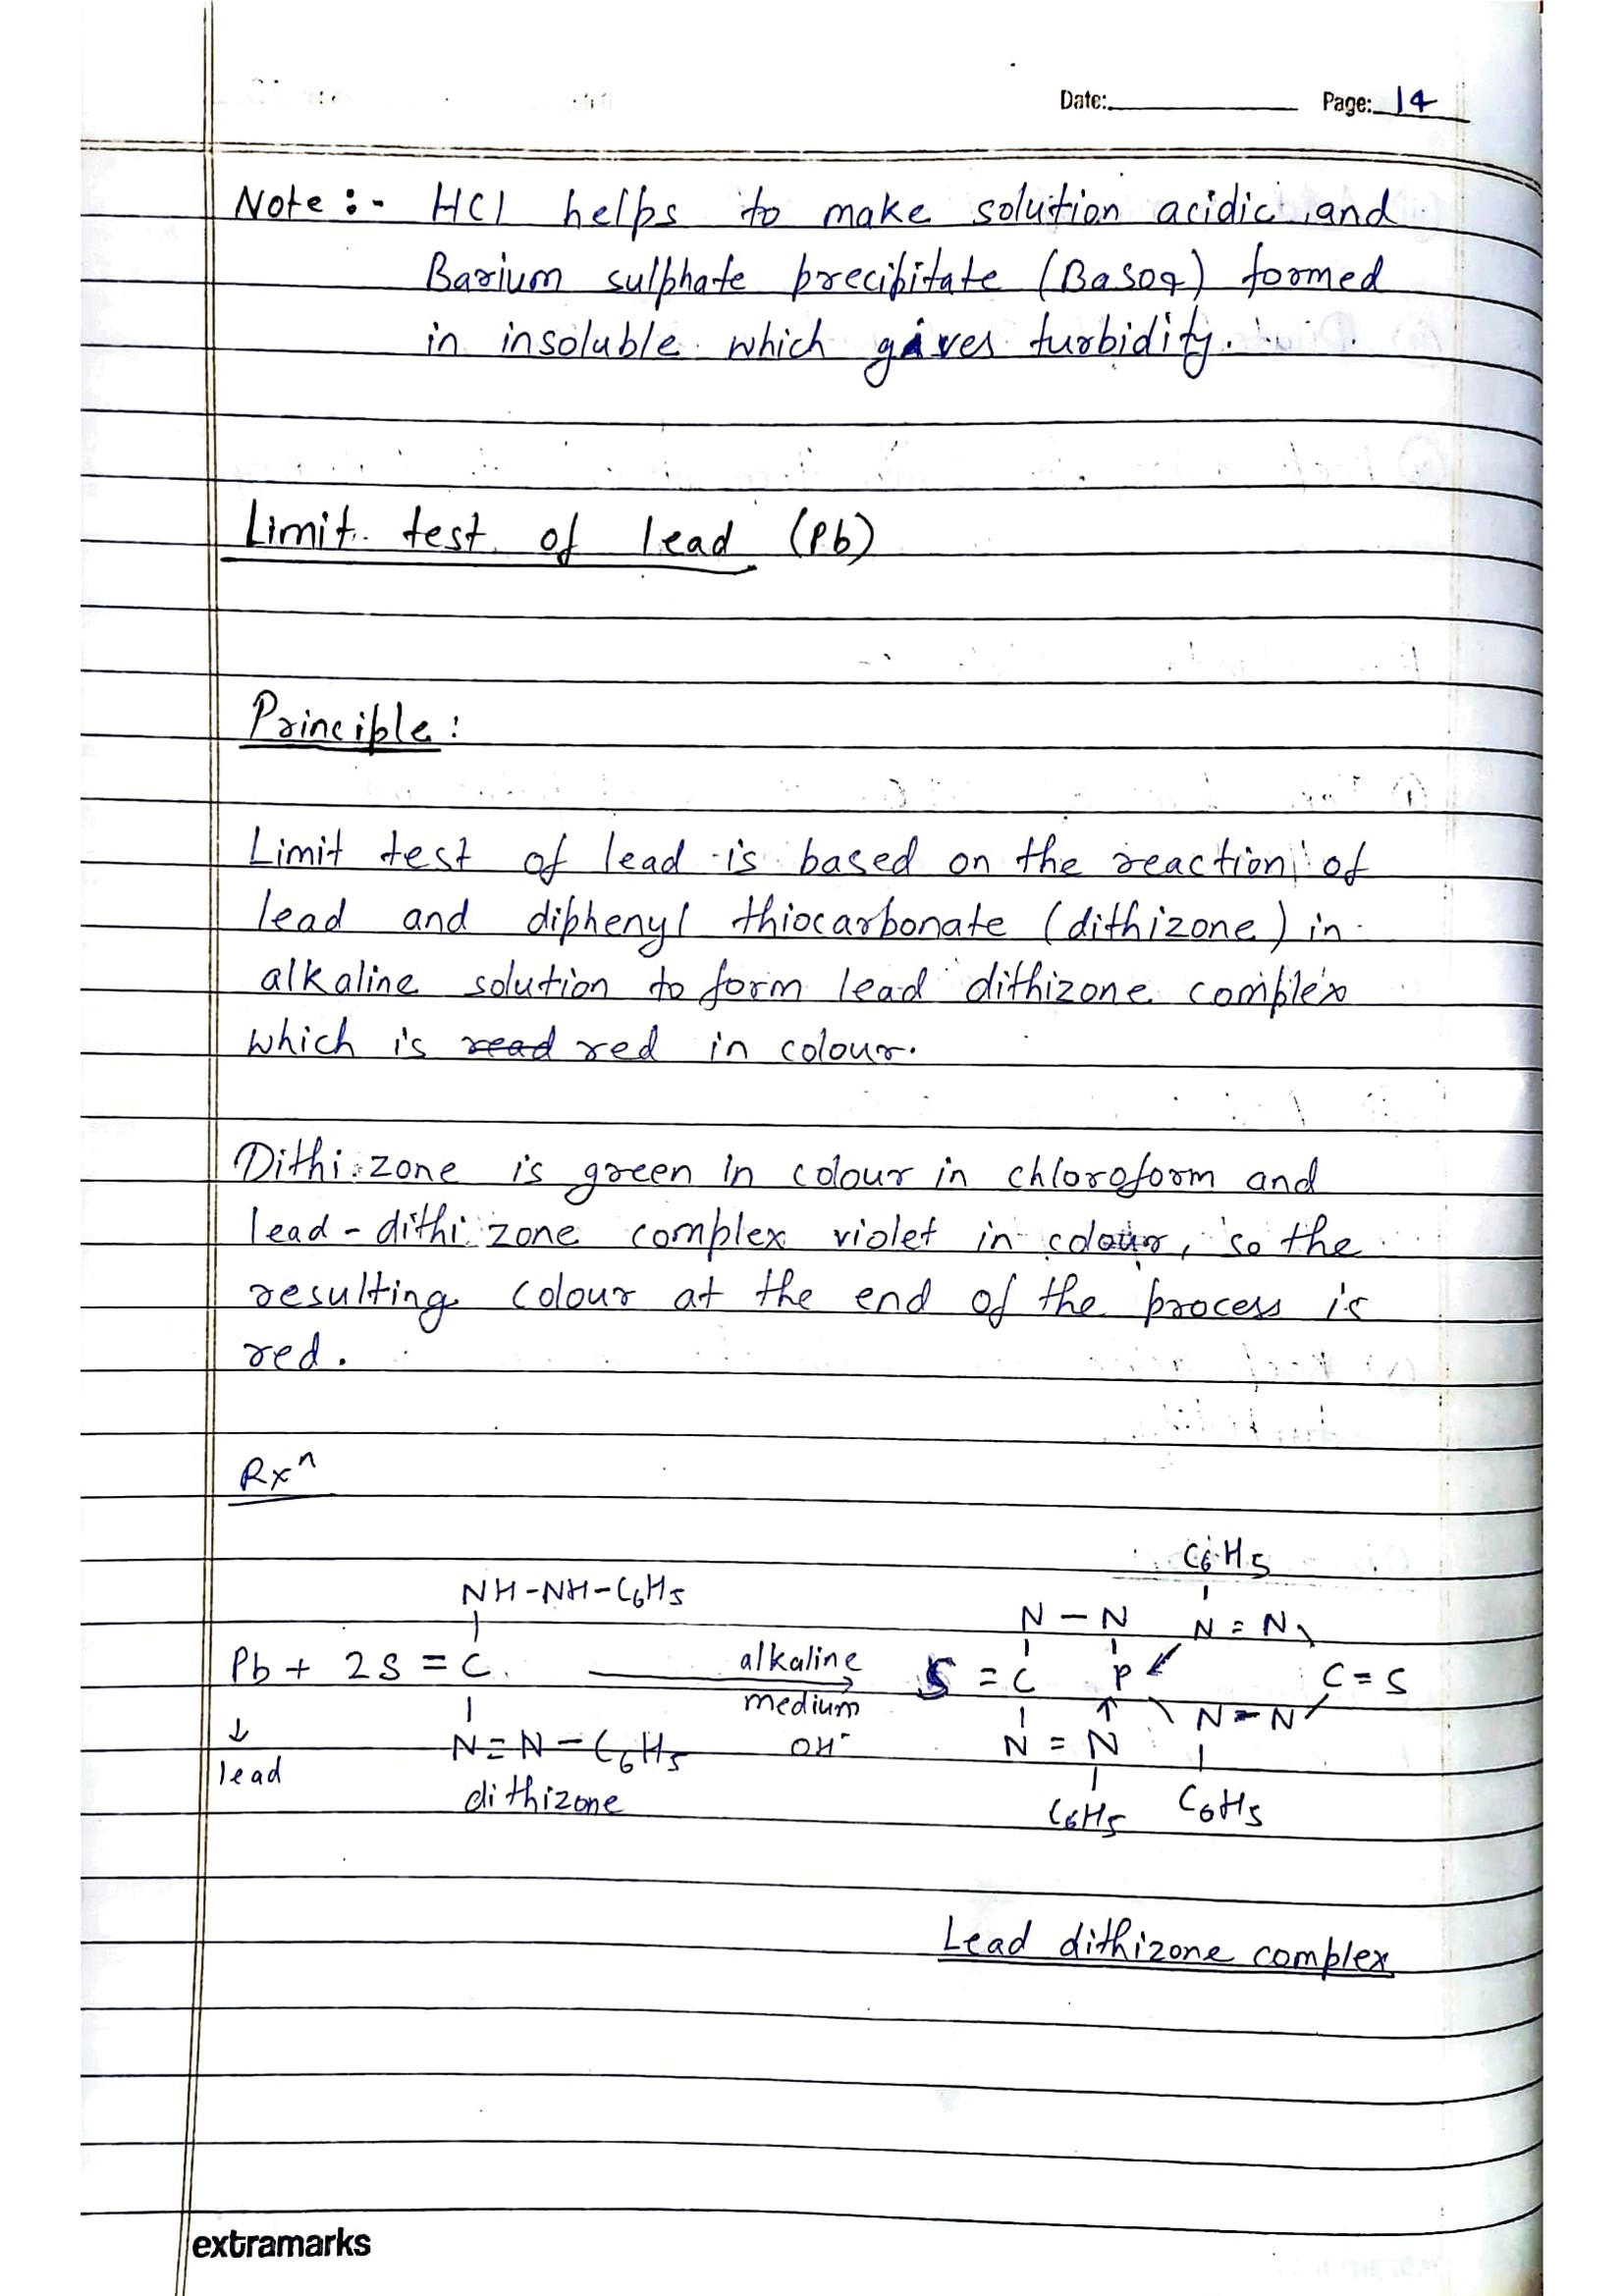 Date: Page: 14
Note :- HCl helps to make solution acidic and
Barium sulphate precipitate (BaSO4) formed
in insoluble which gives turbidity.
Limit test of lead (Pb)
Principle :
Limit test of lead is based on the reaction of
lead and diphenyl thiocarbonate (dithizone) in
alkaline solution to form lead dithizone complex
which is read red in colour.
Dithizone is green in colour in chloroform and
lead-dithizone complex violet in colour, so the
resulting colour at the end of the process is
red.
Rxn
C6H5
NH-NH-C6H5
N - N N = N
Pb + 2S = C alkaline S = C P C = S
medium
N = N
↓ N=N-C6H5 OH- N = N
lead dithizone C6H5 C6H5
Lead dithizone complex
extramarks